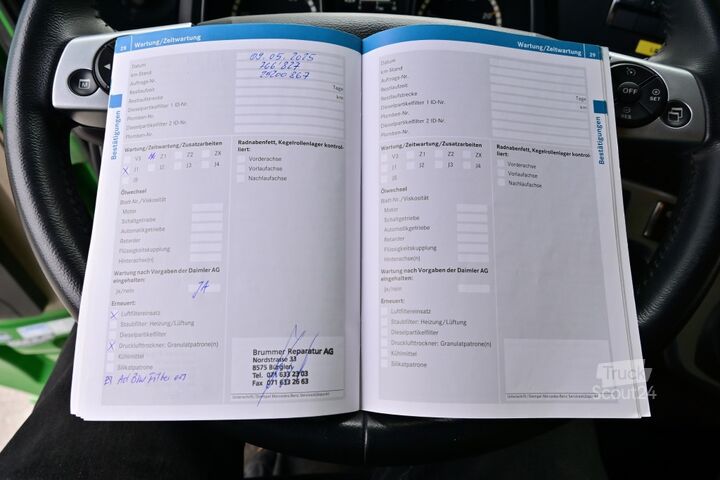 28 Wartung/Zeitwartung
Datum 09.05.2025
km-Stand 766'827
Auftrags-Nr. 25200867
Restlaufzeit Tage
Restlaufstrecke km
Dieselpartikelfilter 1 ID-Nr.
Plomben-Nr.
Dieselpartikelfilter 2 ID-Nr.
Plomben-Nr.
Wartung/Zeitwartung/Zusatzarbeiten
V3 Z1 Z2 ZX
X J1 J2 J3 J4
J8
Ölwechsel
Blatt Nr./Viskosität
Motor
Schaltgetriebe
Automatikgetriebe
Retarder
Flüssigkeitskupplung
Hinterachse(n)
Wartung nach Vorgaben der Daimler AG
eingehalten:
Ja/nein JA
Erneuert:
X Luftfiltereinsatz
Staubfilter: Heizung/Lüftung
Dieselpartikelfilter
X Drucklufttrockner: Granulatpatrone(n)
Kühlmittel
Silikatpatrone
Radnabenfett, Kegelrollenlager kontrol-
liert:
Vorderachse
Vorlaufachse
Nachlaufachse
Brummer Reparatur AG
Nordstrasse 33
8575 Bürglen
Tel. 071 633 23 03
Fax 071 633 26 63
Unterschrift/Stempel Mercedes-Benz Servicestützpunkt
Bestätigungen
Wartung/Zeitwartung 29
Datum
km-Stand
Auftrags-Nr.
Restlaufzeit Tage
Restlaufstrecke km
Dieselpartikelfilter 1 ID-Nr.
Plomben-Nr.
Dieselpartikelfilter 2 ID-Nr.
Plomben-Nr.
Wartung/Zeitwartung/Zusatzarbeiten
V3 Z1 Z2 ZX
J1 J2 J3 J4
J8
Ölwechsel
Blatt Nr./Viskosität
Motor
Schaltgetriebe
Automatikgetriebe
Retarder
Flüssigkeitskupplung
Hinterachse(n)
Wartung nach Vorgaben der Daimler AG
eingehalten:
Ja/nein
Erneuert:
Luftfiltereinsatz
Staubfilter: Heizung/Lüftung
Dieselpartikelfilter
Drucklufttrockner: Granulatpatrone(n)
Kühlmittel
Silikatpatrone
Radnabenfett, Kegelrollenlager kontrol-
liert:
Vorderachse
Vorlaufachse
Nachlaufachse
Unterschrift/Stempel Mercedes-Benz Servicestützpunkt
Bestätigungen
OFF
SET
Truck
Scout24